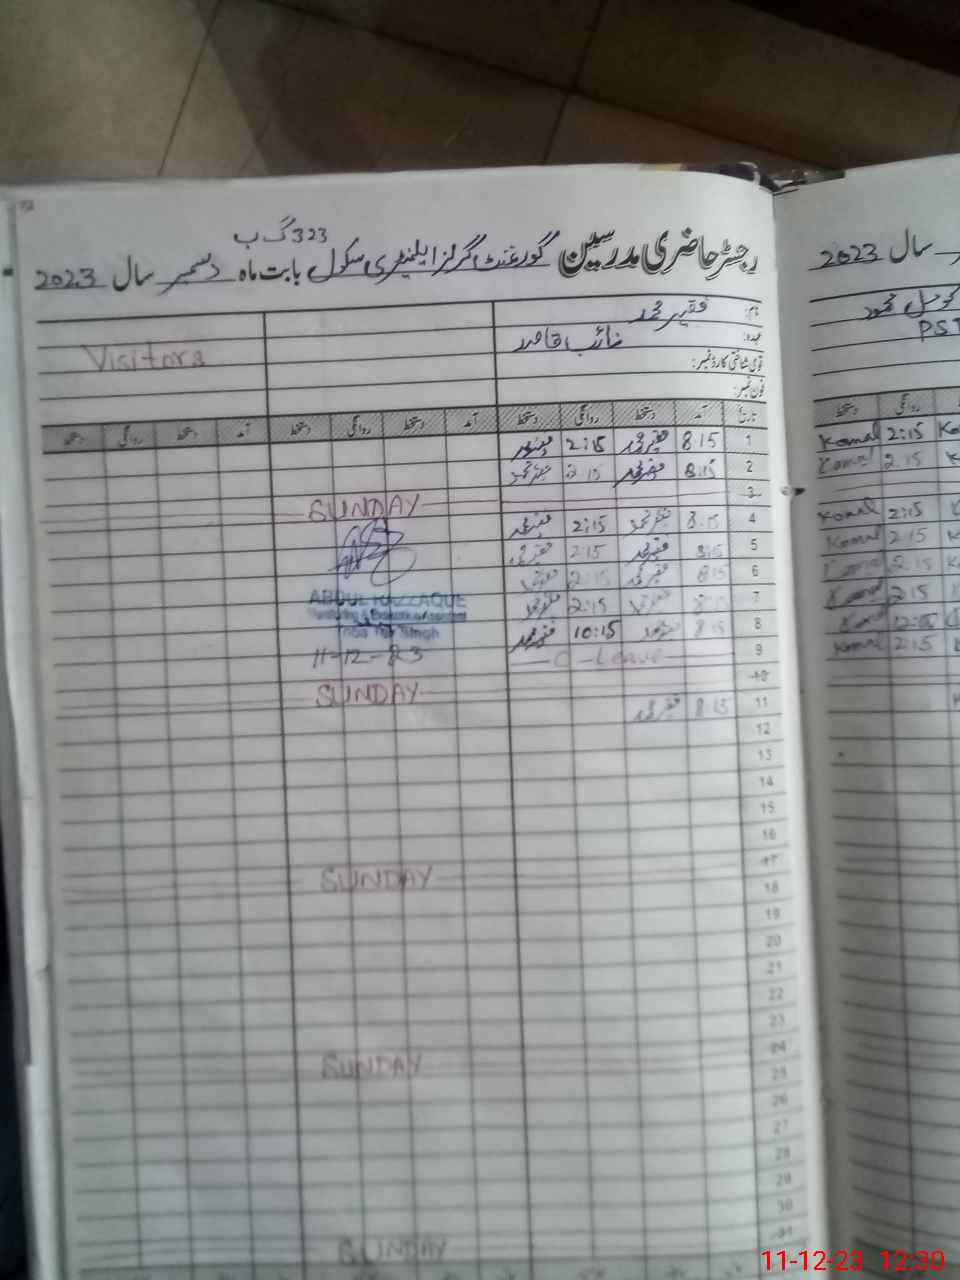 رجسٹر حاضری مدرسین گورنمنٹ گرلز ایلیمنٹری سکول 323 گ ب بابت ماہ دسمبر سال 2023
نام: فقیر محمد
عہدہ: نائب قاصد
قومی شناختی کارڈ نمبر:
فون نمبر:
Visitors
تاریخ آمد دستخط روانگی دستخط آمد دستخط روانگی دستخط آمد دستخط روانگی دستخط
1 8.15 فقیر محمد 2:15 فقیر محمد
2 8:15 فقیر محمد 2:15 فقیر محمد
3 SUNDAY
4 8.15 فقیر محمد 2:15 فقیر محمد
5 8:15 فقیر محمد 2:15 فقیر محمد
6 8:15 فقیر محمد 2:15
7 8:15 2:15 فقیر محمد
8 8:15 فقیر محمد 10:15 فقیر محمد
9 C-Leave
10 SUNDAY
11 8.15 فقیر محمد
ABDUL RAZZAQUE
Monitoring &
Toba Tek Singh
11-12-23
12
13
14
15
16
17 SUNDAY
18
19
20
21
22
23
24 SUNDAY
25
26
27
28
29
30
31 SUNDAY
سال 2023
کومل محمود
PST
دستخط روانگی
Kamal 2:15
Kamal 2.15
Kamal 2:15
Kamal 2:15
Kamal 2:15
Kamal 2:15
Kamal
Kamal 2:15
11-12-23 12:30